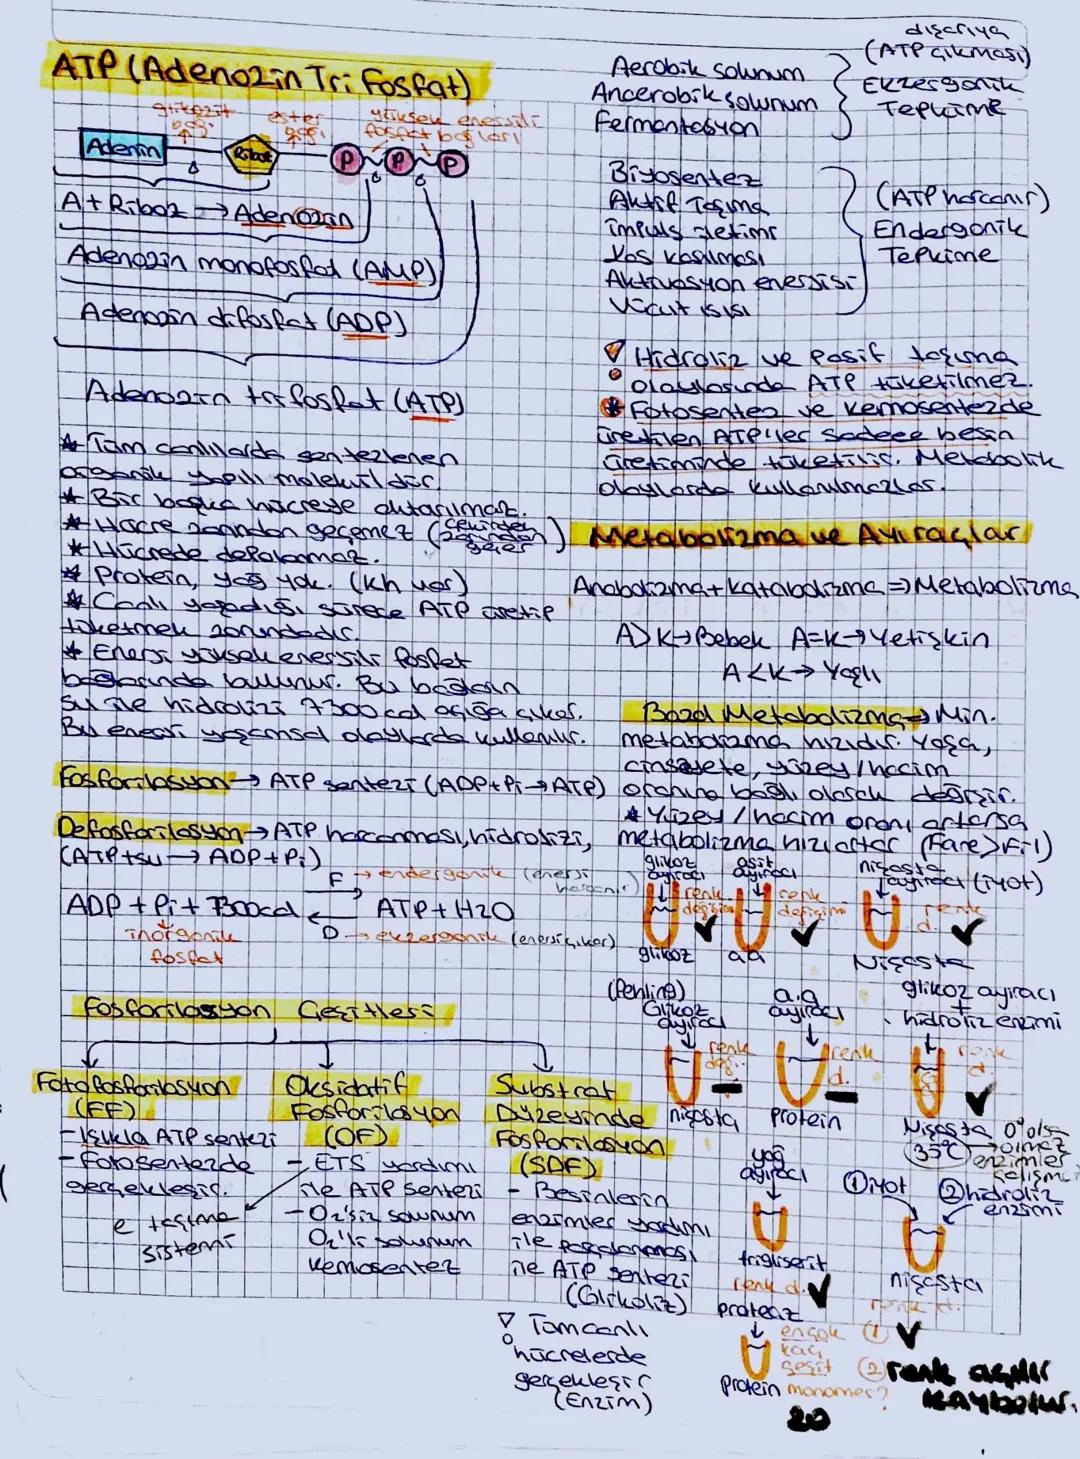 ATP (Adenozin Tri Fosfat)
glikozit bağı
ester bağı
yüksek enerjili fosfat bağları
Adenin
Riboz
P
P
P
A + Riboz → Adenozin
Adenozin monofosfat (AMP)
Adenozin difosfat (ADP)
Adenozin trifosfat (ATP)
* Tüm canlılarda sentezlenen
organik yapılı moleküldür.
* Bir başka hücreye aktarılmaz.
* Hücre zarından geçemez (çekirdek zarından geçer)
* Hücrede depolanmaz.
* Protein, yağ yok. (kh var)
* Canlı yaşadığı sürece ATP üretip
tüketmek zorundadır.
* Enerji yüksek enerjili fosfat
bağlarında bulunur. Bu bağların
su ile hidrolizi 7300 cal açığa çıkar.
Bu enerji yaşamsal olaylarda kullanılır.
Fosforilasyon → ATP sentezi (ADP+Pi→ATP)
Defosforilasyon → ATP harcanması, hidrolizi,
(ATP+su → ADP+Pi)
F → endergonik (enerji harcanır)
ADP + Pi + 7300cal ATP + H2O
D → ekzergonik (enerji çıkar)
inorganik
fosfat
Fosforilasyon Çeşitleri
Fotofosforilasyon
(FF)
- Işıkla ATP sentezi
- Fotosentezde
gerçekleşir.
e taşıma
sistemi
Oksidatif
Fosforilasyon
(OF)
- ETS yardımı
ile ATP sentezi
- O2'siz solunum
O2'li solunum
kemosentez
Substrat
Düzeyinde
Fosforilasyon
(SDF)
- Besinlerin
enzimler yardımı
ile parçalanması
ile ATP sentezi
(Glikoliz)
Tüm canlı
hücrelerde
gerçekleşir
(Enzim)
Aerobik solunum
Anaerobik solunum
Fermantasyon
dışarıya
(ATP çıkması)
Ekzergonik
Tepkime
Biyosentez
Aktif Taşıma
impuls iletimi
Kas kasılması
Aktivasyon enerjisi
Vücut ısısı
(ATP harcanır)
Endergonik
Tepkime
Hidroliz ve pasif taşıma
olaylarında ATP tüketilmez.
* Fotosentez ve kemosentezde
üretilen ATP'ler sadece besin
üretiminde tüketilir. Metabolik
olaylarda kullanılmazlar.
Metabolizma ve Ayıraçlar
Anabolizma + Katabolizma ⇒ Metabolizma
A>K → Bebek A=K → Yetişkin
A<K → Yaşlı
Bazal Metabolizma → Min.
metabolizma hızıdır. Yaşa,
cinsiyete, yüzey/hacim
oranına bağlı olarak değişir.
* Yüzey/hacim oranı artarsa
metabolizma hızı artar (Fare>Fil)
glikoz ayıracı
renk değişim ✓
glikoz
asit ayıracı
renk değişim ✓
aa
nişasta ayıracı (iyot)
renk d. ✓
Nişasta
(fehling)
Glikoz ayıracı
renk değ. -
nişasta
a.a ayıracı
renk d. -
protein
glikoz ayıracı
+
hidroliz enzimi
renk d. ✓
Nişasta
35°C
0° olsa
olmaz
enzimler
çalışmaz
yağ ayıracı
trigliserit
renk d. ✓
① iyot
② hidroliz enzimi
nişasta
renk d.
① ✓
② renk açılır
kaybolur.
proteaz
protein
en çok
kaç
çeşit
monomer?
20